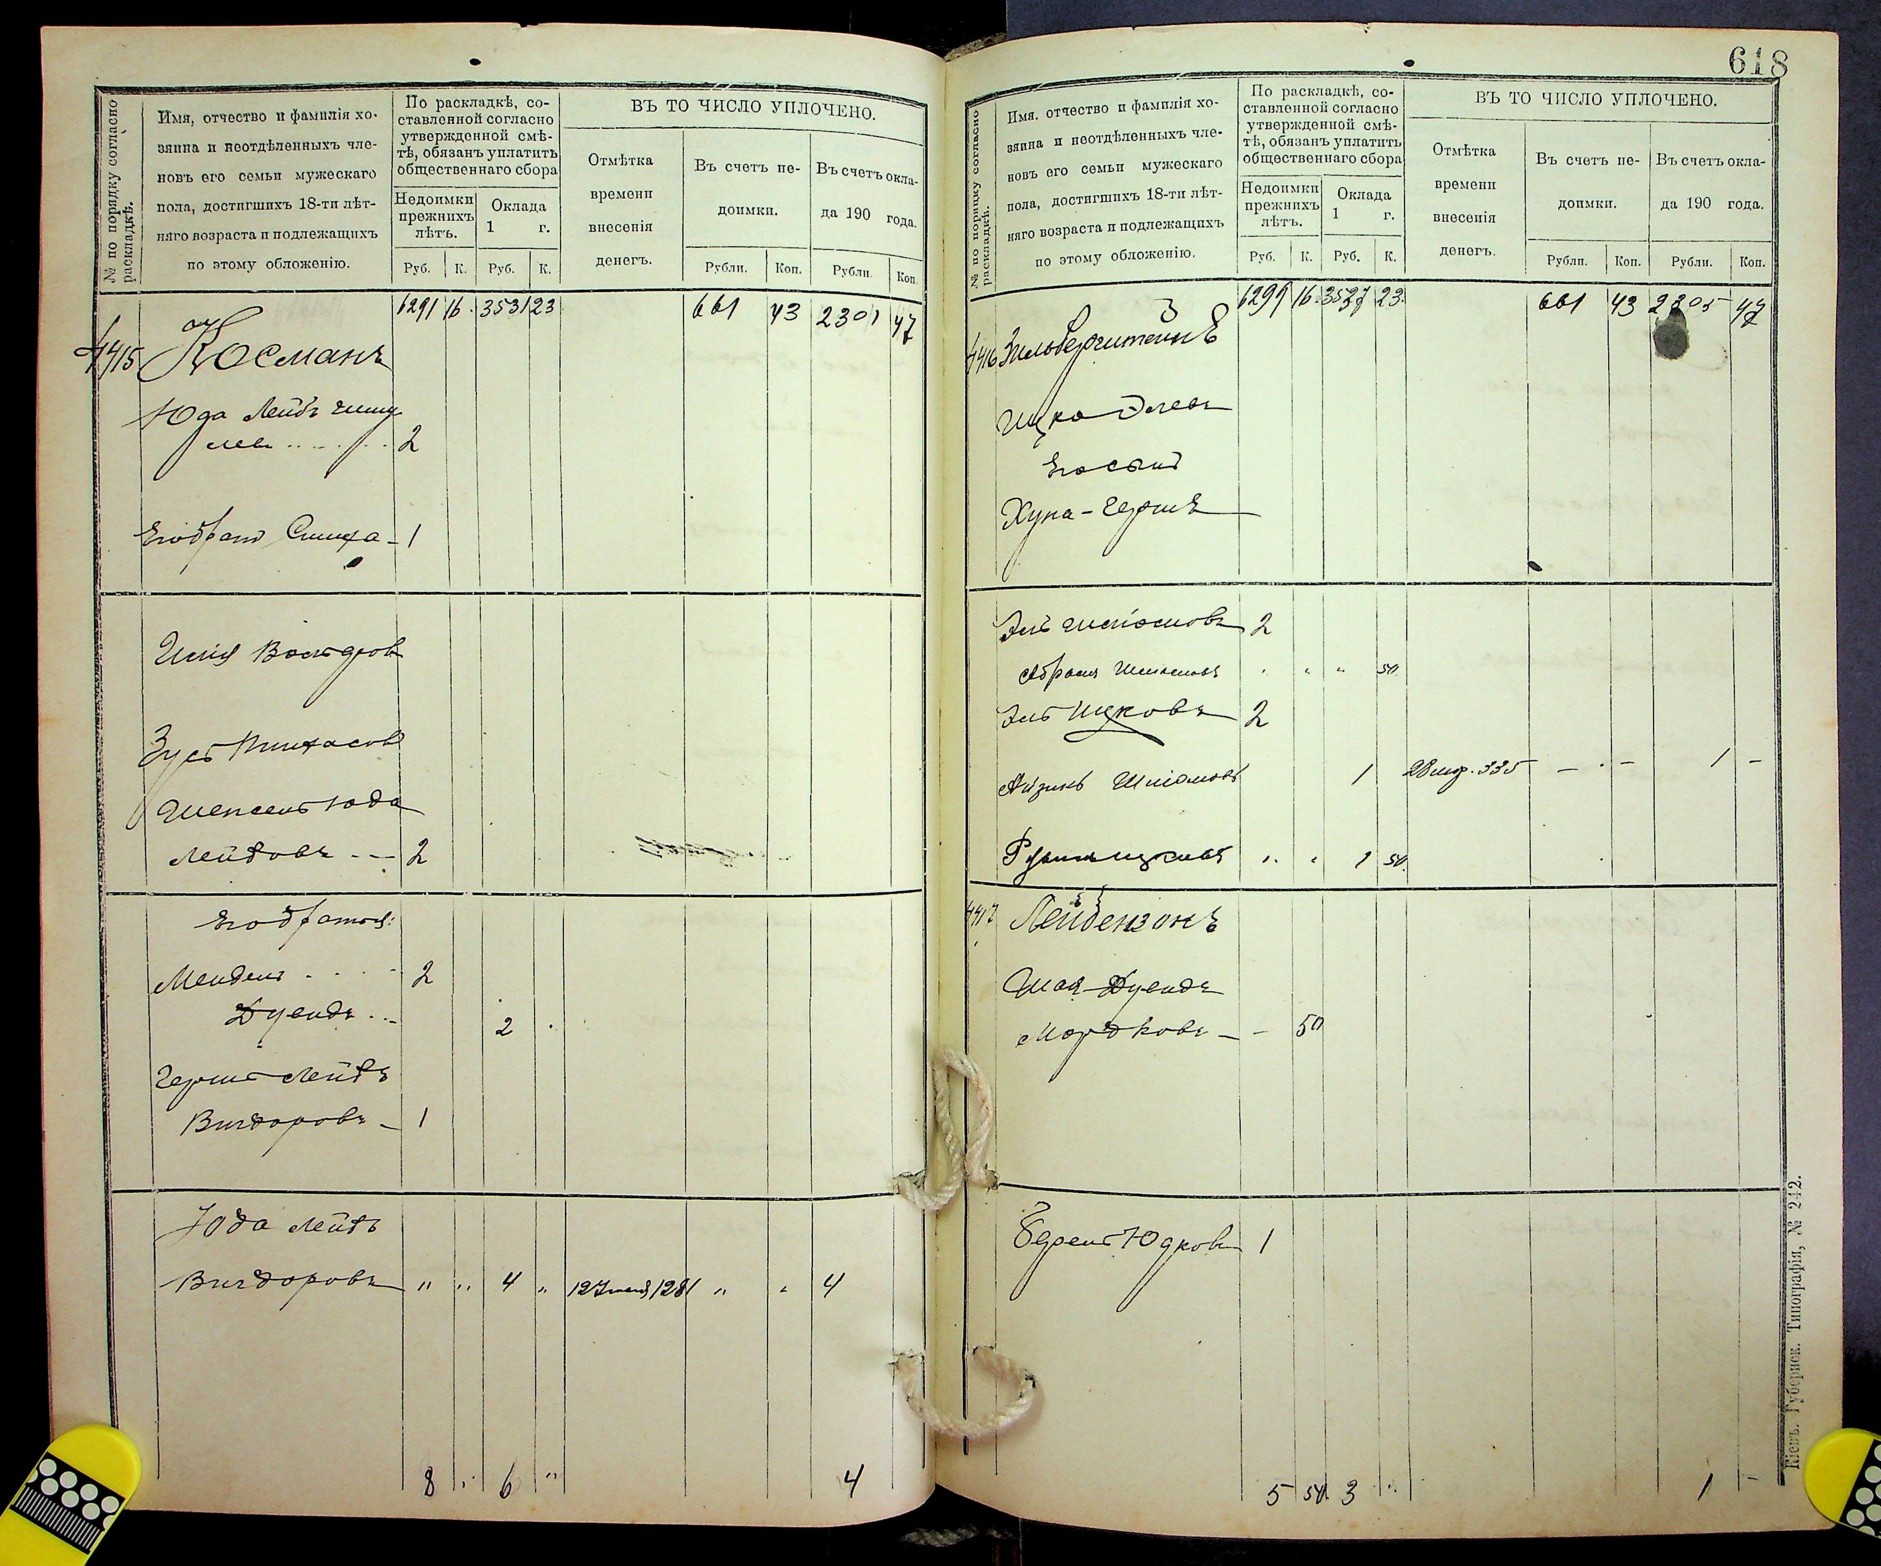 № по порядку согласно раскладкѣ.
Имя, отчество и фамилія хо-
зяина и неотдѣленныхъ чле-
новъ его семьи мужескаго
пола, достигшихъ 18-ти лѣт-
няго возраста и подлежащихъ
по этому обложенію.
По раскладкѣ, со-
ставленной согласно
утвержденной смѣ-
тѣ, обязанъ уплатить
общественнаго сбора
Недоимки
прежнихъ
лѣтъ.
Оклада
1 г.
Руб. К. Руб. К.
ВЪ ТО ЧИСЛО УПЛОЧЕНО.
Отмѣтка
времени
внесенія
денегъ.
Въ счетъ не-
доимки.
Въ счетъ окла-
да 190 года.
Рубли. Коп. Рубли. Коп.
6291 16 3531 23 661 43 2301 47
4415 Косманъ
Юда Лейбъ
2
Егобратъ Симха - 1
Зусь Пинхасовъ
Юда
Лейбовъ - - 2
Егобратья:
Мендель - - 2
Дувидъ - - 2
Гершъ Лейбъ
Вигдоровъ - 1
Юда Лейбъ
Вигдоровъ " " 4 " 12 1281 " " 4
8 " 6 " 4
618
№ по порядку согласно раскладкѣ.
Имя, отчество и фамилія хо-
зяина и неотдѣленныхъ чле-
новъ его семьи мужескаго
пола, достигшихъ 18-ти лѣт-
няго возраста и подлежащихъ
по этому обложенію.
По раскладкѣ, со-
ставленной согласно
утвержденной смѣ-
тѣ, обязанъ уплатить
общественнаго сбора
Недоимки
прежнихъ
лѣтъ.
Оклада
1 г.
Руб. К. Руб. К.
ВЪ ТО ЧИСЛО УПЛОЧЕНО.
Отмѣтка
времени
внесенія
денегъ.
Въ счетъ не-
доимки.
Въ счетъ окла-
да 190 года.
Рубли. Коп. Рубли. Коп.
6299 16 3537 23 661 43 2305 47
З
4416 Зильберштейнъ
Ицко Элевъ
Егосынъ
Хуна-Гершъ
Эль Шліомовъ 2
Абрамъ Шліомовъ " " " 50
Эль Ицковъ 2
Айзикъ Шліомовъ 1 28 335 - - 1 -
" " 1 50
4417 Лейбензонъ
Шая-Дувидъ
Мордковъ - - 50
Берель Юдковъ 1
5 50 3 " 1 -
Кіевъ. Губернск. Типографія, № 242.